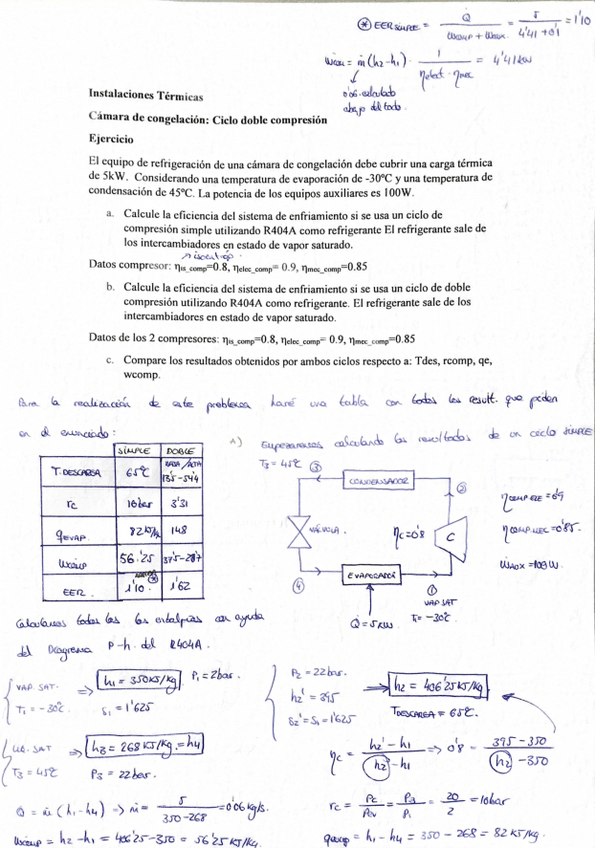 ⊛ EER SIMPLE = Q̇ / (Wcomp + Waux.) = 5 / (4'41 + 0'1) = 1'10
Ẇcom = ṁ (h2 - h1) · 1 / (ηelect · ηmec) = 4'41 kW
↓
0'06 calculado
abajo del todo.
Instalaciones Térmicas
Cámara de congelación: Ciclo doble compresión
Ejercicio
El equipo de refrigeración de una cámara de congelación debe cubrir una carga térmica
de 5kW. Considerando una temperatura de evaporación de -30ºC y una temperatura de
condensación de 45ºC. La potencia de los equipos auxiliares es 100W.
a. Calcule la eficiencia del sistema de enfriamiento si se usa un ciclo de
compresión simple utilizando R404A como refrigerante El refrigerante sale de
los intercambiadores en estado de vapor saturado.
Datos compresor: ηis_comp=0.8, ηelec_comp= 0.9, ηmec_comp=0.85
b. Calcule la eficiencia del sistema de enfriamiento si se usa un ciclo de doble
compresión utilizando R404A como refrigerante. El refrigerante sale de los
intercambiadores en estado de vapor saturado.
Datos de los 2 compresores: ηis_comp=0.8, ηelec_comp= 0.9, ηmec_comp=0.85
c. Compare los resultados obtenidos por ambos ciclos respecto a: Tdes, rcomp, qe,
wcomp.
Para la realización de este problema haré una tabla con todos los result. que piden
en el enunciado:
SIMPLE DOBLE
T. DESCARGA 65ºC BAJA/ALTA
rc 10bar 3'31
qEVAP. 82 KJ/Kg 148
Wcomp 56'25
EER. 1'10 ⊛ 1'62
A) Empezaremos calculando los resultados de un ciclo SIMPLE
T3 = 45ºC ③ CONDENSADOR ②
VÁLVULA ηc = 0'8 C
ηCOMP ELE = 0'9
ηCOMP MEC = 0'85.
ẆAUX = 100 W.
④ EVAPORADOR ①
VAP SAT
Q̇ = 5 KW T1 = -30ºC
Calculamos todas las entalpías con ayuda
del Diagrama P-h. del R404A.
VAP. SAT. ⇒ h1 = 350 KJ/Kg P1 = 2bar.
T1 = -30ºC S1 = 1'625
LIQ. SAT ⇒ h3 = 268 KJ/Kg = h4
T3 = 45ºC P3 = 22 bar.
Q̇ = ṁ (h1 - h4) ⇒ ṁ = 5 / (350 - 268) = 0'06 kg/s.
Wcomp = h2 - h1 = 406'25 - 350 = 56'25 KJ/Kg.
P2 = 22 bar.
h2' = 395 → h2 = 406'25 KJ/Kg
S2' = S1 = 1'625 TDESCARGA = 65ºC.
ηc = (h2' - h1) / (h2 - h1) ⇒ 0'8 = (395 - 350) / (h2 - 350)
rc = Pc / Pev = P3 / P1 = 20 / 2 = 10bar
qevap = h1 - h4 = 350 - 268 = 82 KJ/Kg.